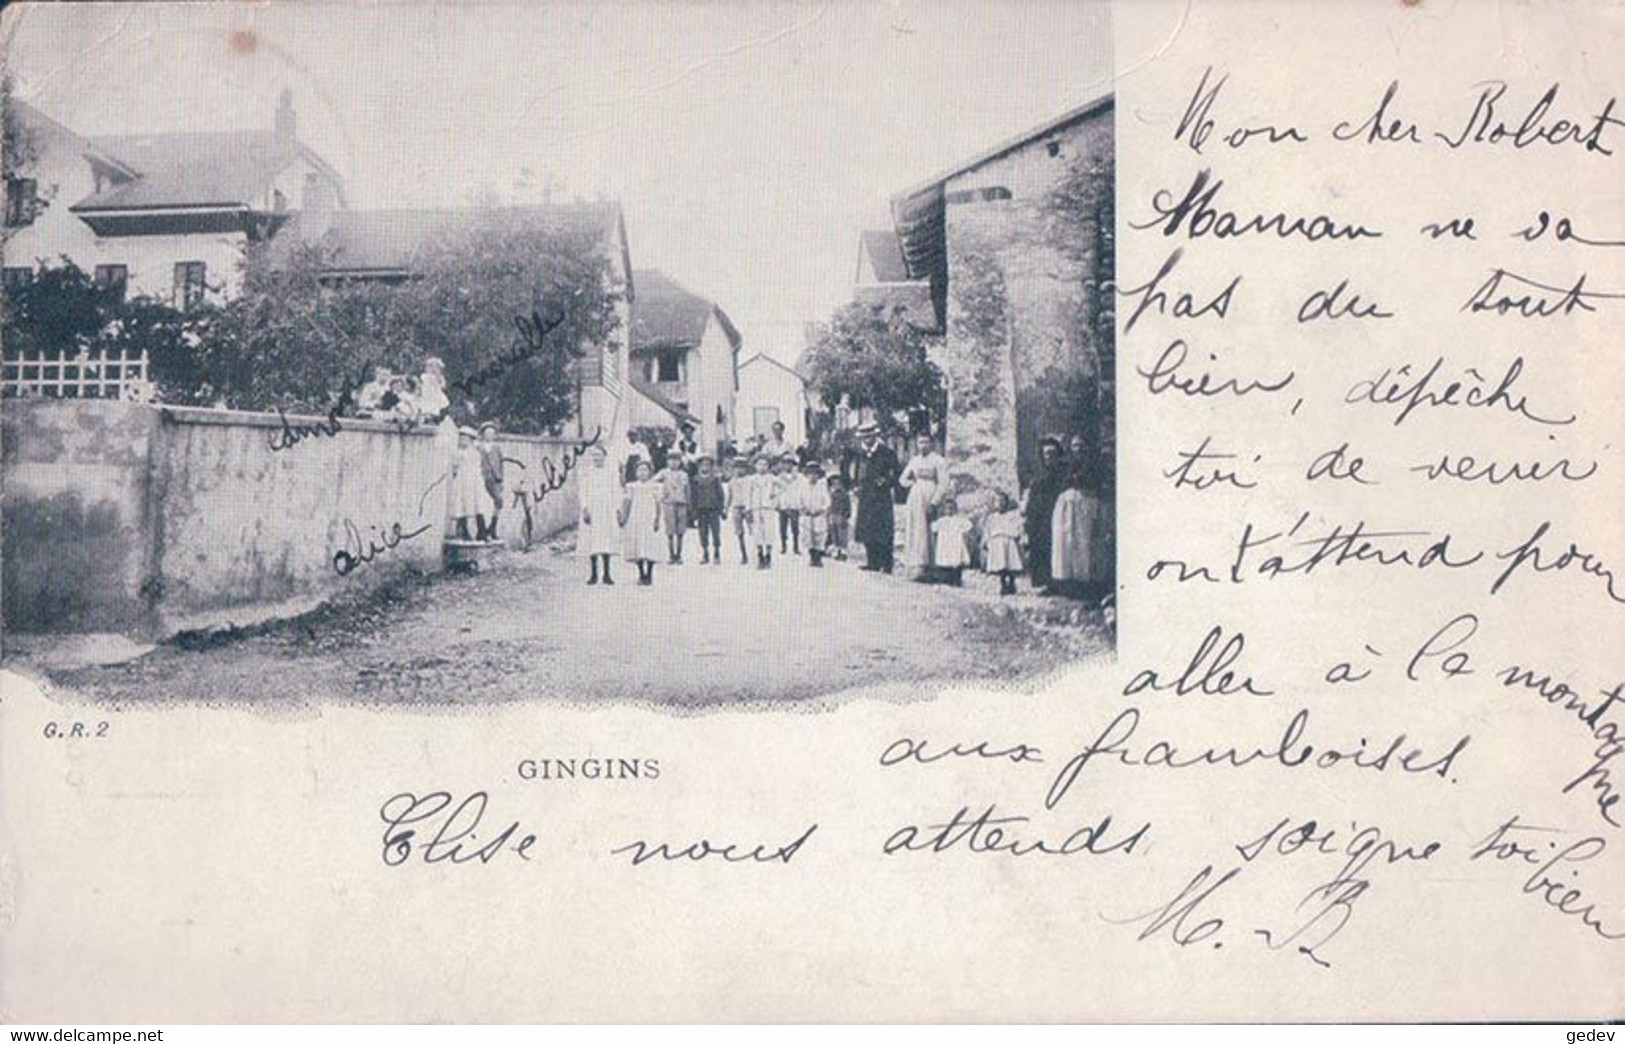 Mon cher Robert
Maman ne va
pas du tout
bien, dépêche
toi de venir
on t'attend pour
aller à la montagne
aux framboises.
Elise nous attends soigne toi bien
M. B
alice
julien
G.R.2
GINGINS
www.delcampe.net
gedev